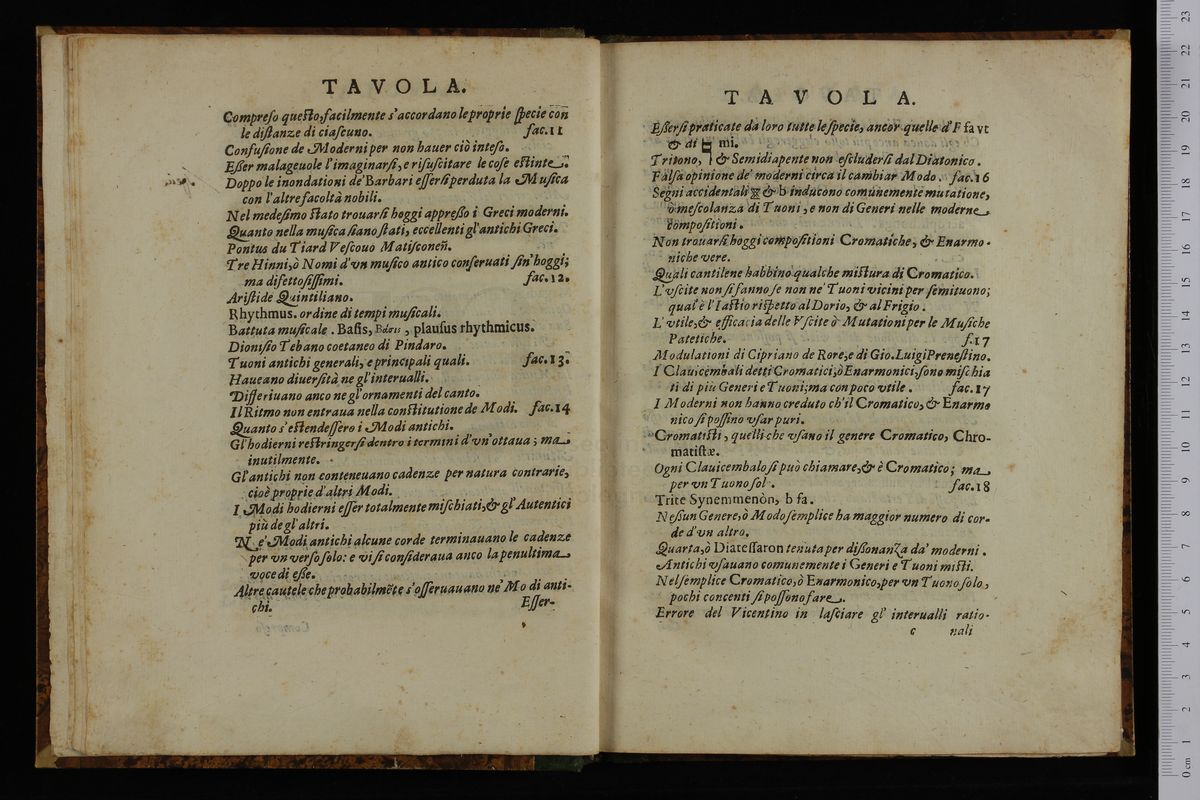 TAVOLA.
Compreſo queſto, facilmente s'accordano le proprie ſpecie con
le diſtanze di ciaſcuno. fac.11
Confuſione de Moderni per non hauer ciò inteſo.
Eſſer malageuole l'imaginarſi, e riſuſcitare le coſe eſtinte.
Doppo le inondationi de' Barbari eſſerſi perduta la Muſica
con l'altre facoltà nobili.
Nel medeſimo ſtato trouarſi hoggi appreſſo i Greci moderni.
Quanto nella muſica ſiano ſtati, eccellenti gl'antichi Greci.
Pontus du Tiard Veſcouo Matiſconeñ.
Tre Hinni, ò Nomi d'vn muſico antico conſeruati ſin'hoggi;
ma difettoſiſſimi. fac.12.
Ariſtide Quintiliano.
Rhythmus. ordine di tempi muſicali.
Battuta muſicale. Baſis, Βάσις, plauſus rhythmicus.
Dioniſio Tebano coetaneo di Pindaro.
Tuoni antichi generali, e principali quali. fac.13.
Haueano diuerſità ne gl'interualli.
Differiuano anco ne gl'ornamenti del canto.
Il Ritmo non entraua nella conſtitutione de Modi. fac.14
Quanto s'eſtendeſſero i Modi antichi.
Gl'hodierni reſtringerſi dentro i termini d'vn'ottaua; ma
inutilmente.
Gl'antichi non conteneuano cadenze per natura contrarie,
cioè proprie d'altri Modi.
I Modi hodierni eſſer totalmente miſchiati, & gl'Autentici
più de gl'altri.
Ne' Modi antichi alcune corde terminauano le cadenze
per vn verſo ſolo: e vi ſi conſideraua anco la penultima
voce di eſſe.
Altre cautele che probabilmẽte s'oſſeruauano ne' Mo di anti-
chi. Eſſer-
TAVOLA.
Eſſerſi praticate da loro tutte le ſpecie, ancor quelle d'F fa vt
& di ♮ mi.
Tritono, & Semidiapente non eſcluderſi dal Diatonico.
Falſa opinione de' moderni circa il cambiar Modo. fac.16
Segni accidentali ※ & b inducono comunemente mutatione,
ò meſcolanza di Tuoni, e non di Generi nelle moderne
compoſitioni.
Non trouarſi hoggi compoſitioni Cromatiche, & Enarmo-
niche vere.
Quali cantilene habbino qualche miſtura di Cromatico.
L'vſcite non ſi fanno ſe non ne' Tuoni vicini per ſemituono;
qual'è l'Iaſtio riſpetto al Dorio, & al Frigio.
L'vtile, & efficacia delle Vſcite ò Mutationi per le Muſiche
Patetiche. f.17
Modulationi di Cipriano de Rore, e di Gio. Luigi Preneſtino.
I Clauicembali detti Cromatici, ò Enarmonici, ſono miſchia
ti di più Generi e Tuoni; ma con poco vtile. fac.17
I Moderni non hanno creduto ch'il Cromatico, & Enarmo
nico ſi poſſino vſar puri.
Cromatiſti, quelli che vſano il genere Cromatico, Chro-
matiſtæ.
Ogni Clauicembalo ſi può chiamare, & è Cromatico; ma
per vn Tuono ſol'. fac.18
Trite Synemmenòn, b fa.
Neſſun Genere, ò Modo ſemplice ha maggior numero di cor-
de d'vn altro.
Quarta, ò Diateſſaron tenuta per diſſonanza da' moderni.
Antichi vſauano comunemente i Generi e Tuoni miſti.
Nel ſemplice Cromatico, ò Enarmonico, per vn Tuono ſolo,
pochi concenti ſi poſſono fare.
Errore del Vicentino in laſciare gl' interualli ratio-
c nali